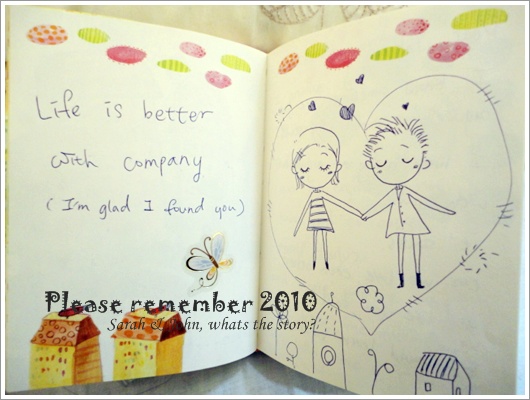 Life is better
with company
( I'm glad I found you)
Please remember 2010
Sarah & John, whats the story?